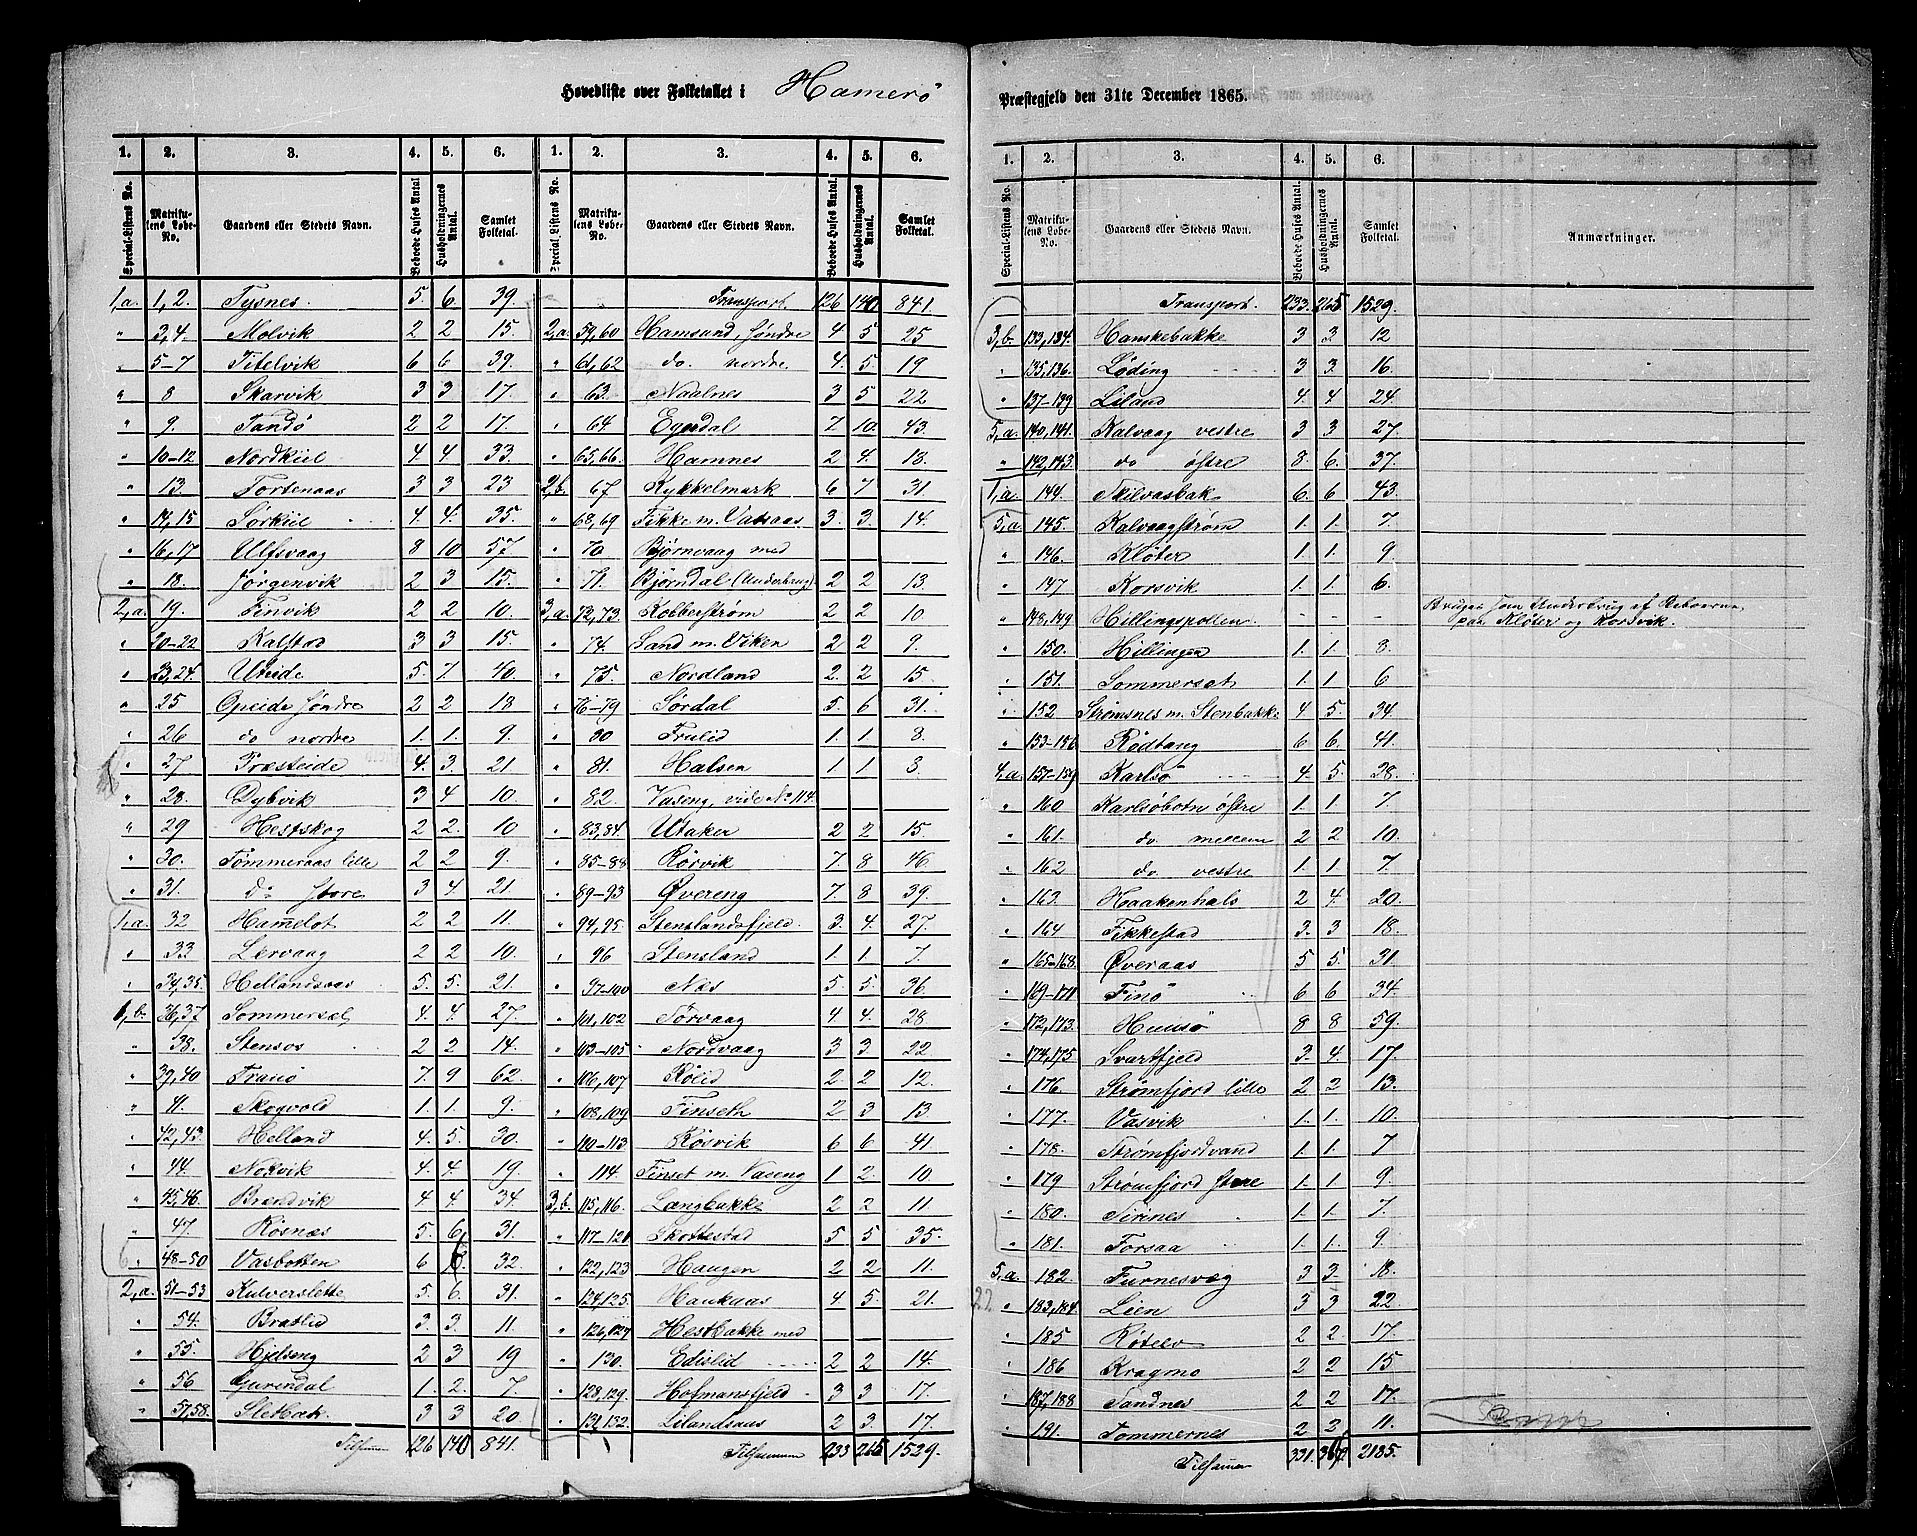 Hovedliste over Folketallet i Hamerö
Præstegjeld den 31te December 1865.
1. 2. 3. 4. 5. 6. 1. 2. 3. 4. 5. 6.
Special-Listens No. Matrikulens Løbe-No. Gaardens eller Stedets Navn. Beboede Huses Antal Husholdningernes Antal. Samlet Folketal. Special-Listens No. Matrikulens Løbe-No. Gaardens eller Stedets Navn. Beboede Huses Antal. Husholdningernes Antal. Samlet Folketal.
1,a. 1, 2. Tysnes. 5. 6. 39.
" 3,4. Molvik 2 2 15.
" 5-7 Titelvik 6 6 39.
" 8 Skarvik 3 3 17.
" 9. Tandö 2 2 17.
" 10-12 Nordkiil 4. 4 33.
" 13. Tortenaas 3 3 23
" 14, 15 Sörkiil 4. 4. 35.
" 16, 17 Ulfsvaag 8 10 57
" 18. Jörgenvik 2 3 15.
2,a. 19. Finvik 2 2 10.
" 20-22 Kalstad 3 3 15.
" 23,24. Uteide 5. 7. 40.
" 25 Opeide söndre 2 2 18
" 26 do nordre 1. 1. 9.
" 27 Præsteide 4. 3. 21
" 28. Dybvik 3 4 10.
" 29 Hestskog 2 2. 10
" 30. Tömmeraas lille 2 2 9.
" 31. do store 3 4. 21.
1,a. 32 Hamelot 2 2 11.
" 33 Lervaag 2 2 10.
" 34, 35. Hellandsaas 5. 5. 21.
1,b. 36, 37 Sommersæl 4. 4. 27
" 38. Stensos 2 2 14.
" 39, 40 Tranö 7. 9 62.
" 41. Skogvold 1. 1. 9.
" 42, 43. Helland 4. 5. 30.
" 44. Norvik 4. 4. 19
" 45,46. Brændvik 4 4. 34.
" 47. Rösnæs 5. 6 31.
" 48-50 Vasbotten 6 6. 32.
2,a. 51-53 Kulverslette 5. 6. 31.
" 54. Bratlid 3. 3. 11.
" 55. Hjelseng 2 3 19
" 56 Gjurendal 1. 2. 7.
" 57,58. Sletbak 3 3 20.
Tilsammen 126 140 841.
Transport. 126 140 841.
2,a. 59, 60 Hamsund, söndre 4 5 25
" 61, 62 do nordre 4. 5. 19
" 63. Naalnes 3 5 22
" 64. Eyndal 7 10. 43.
" 65, 66. Hamnes 2 4. 18.
2,b. 67. Kykkelmark 6 7 31.
" 68, 69 Fikke m. Vatsaas 3. 3. 14.
" 70 Björnvaag med
" 71. Björndal (Underbrug) 2 2 13
3,a. 72, 73 Kobberström 2 2 10.
" 74. Sand m. Viken 2 2 9.
" 75. Nordland 2. 2. 15.
" 76-79 Sördal 5. 6 31.
" 80 Frulid 1. 1 8.
" 81. Halsen 1 1 3.
" 82. Vaseng, vide No 114.
" 83,84. Utaker 2 2 15.
" 85-88 Rörvik 7. 8 46.
" 89-93 Övereng 7. 8 39.
" 94, 95. Stenslandsfjeld. 3. 4. 27.
" 96 Stensland 1 1 7.
" 97-100 Næs 5. 5. 36.
" 101, 102 Törvaag 4 4. 28.
" 103-105 Nordvaag 3 3. 22
" 106, 107 Rölid 2. 2 12.
" 108, 109 Finseth 2 3 13
" 110-113 Rösvik 6 6 41
" 114. Finset m. Vaseng 1 2. 10.
3,b. 115, 116. Langbakke 2 2 11
" 117-121 Skottestad 5 5 35.
" 122, 123 Haugen 2 2 11.
" 124, 125. Haukaas 4 5. 21.
" 126, 127 Hestbakke med
" 130. Edislid 2 2 14.
" 128, 129. Hofmansfjeld 3 3 17.
" 131, 132. Lilandsaas 2 3. 17.
Tilsammen 233 265 1529.
1. 2. 3. 4. 5. 6.
Special-Listens No. Matrikulens Løbe-No. Gaardens eller Stedets Navn. Beboede Huses Antal. Husholdningernes Antal. Samlet Folketal. Anmærkninger.
Transport. 233. 265 1529.
3,b. 133, 134. Hanskebakke 3 3 12
" 135, 136. Löding 3 3. 16.
" 137-139 Liland 4. 4 24.
5,a. 140, 141. Kalvaag vestre 3 3 27.
" 142, 143. do östre 8. 6. 37.
1,a. 144. Skilvasbak 6. 6 43.
5,a. 145. Kalvaagström 1. 1. 7.
" 146. Klöter 1. 1. 9
" 147 Korsvik 1. 1. 6.
" 148, 149 Hillingspollen - - - Bruges som Underbrug af Beboerne
paa Klöter og Korsvik.
" 150. Hillingen 1. 1. 8.
" 151. Sommerset 1. 1. 6
" 152 Strömsnes m. Stenbakke 4. 5. 34.
" 153-156 Rödtang 6 6. 41.
4,a. 157-159 Karlsö 4. 5. 28.
" 160 Karlsöbotn östre 1. 1. 7.
" 161. do mellem 2 2 10.
" 162 do vestre 1. 1. 7.
" 163. Haakenhals 2 4. 20.
" 164 Fikkestad 3. 3 18.
" 165-168. Överaas 5 5. 31
" 169-171 Finö 6 6 34.
" 172, 173. Hulsö 8 8 59.
" 174, 175 Svartfjeld 3. 4. 17
" 176 Strömfjord lille 2 2 13.
" 177. Vasvik 1. 1. 10.
" 178. Strömfjordvand 1. 1. 7
" 179 Strömfjord store 1. 1. 9.
" 180. Tirines 1. 1. 7.
" 181. Forsaa 1. 1. 9.
5,a. 182. Furnesvæg 3 3. 18.
22 " 183, 184. Lien 3 3 22
" 185 Rötelv 2 2 17.
" 186 Kragmo 2 2 15
" 187, 188 Sandnes 2 2 17.
" 191. Tommernes 2 2 11.
Tilsammen 331. 367. 2185.